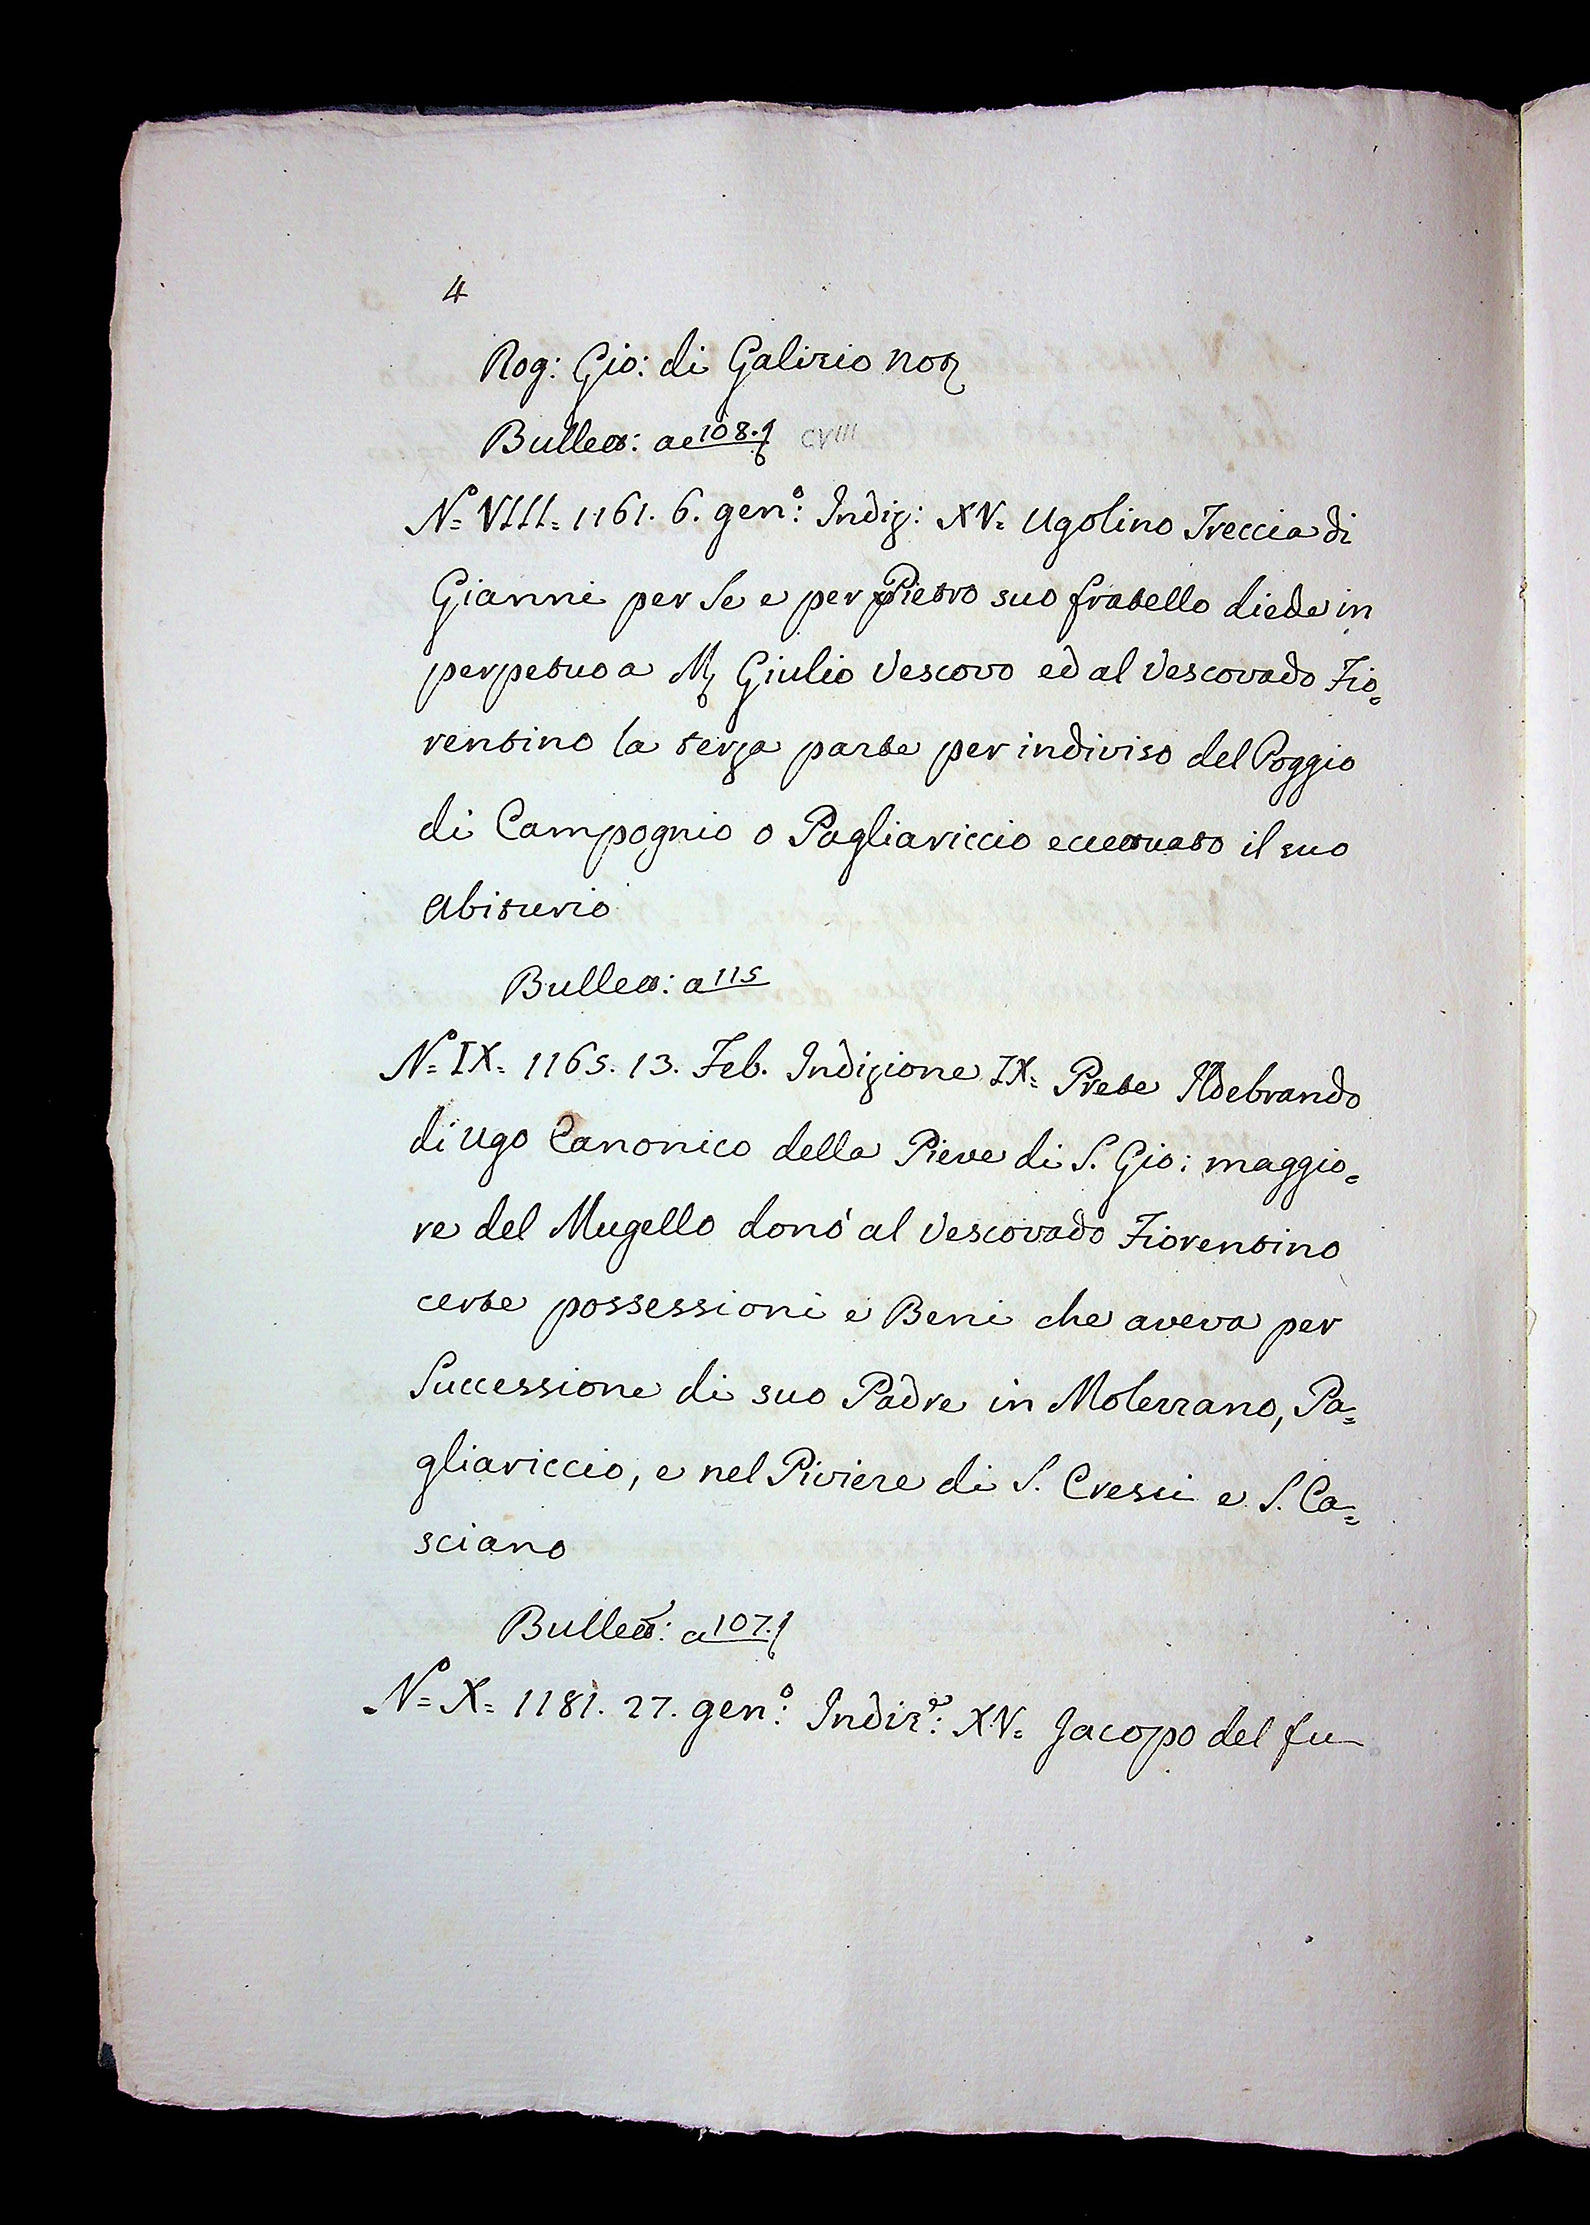 4
Rog: Gio: di Galizio Not
Bullett: a c 108. t CVIII
N.o VIII. 1161. 6. gen.o: Indiz: XV. Ugolino Treccia di
Gianni per se e per Pietro suo fratello diede in
perpetuo a M. Giulio Vescovo ed al Vescovado Fio=
rentino la terza parte per indiviso del Poggio
di Campognio o Pagliariccio eccettuato il suo
Abiturio
Bullett: a 115
N.o IX. 1165. 13. Feb. Indizione IX. Prete Ildebrando
di Ugo Canonico della Pieve di S. Gio: maggio=
re del Mugello donò al Vescovado Fiorentino
certe possessioni e Beni che aveva per
Successione di suo Padre in Molezzano, Pa=
gliariccio, e nel Piviere di S. Cresci e S. Ca=
sciano
Bullett: a 107. t
N.o X. 1181. 27. gen.o: Indiz.e: XV. Jacopo del fu